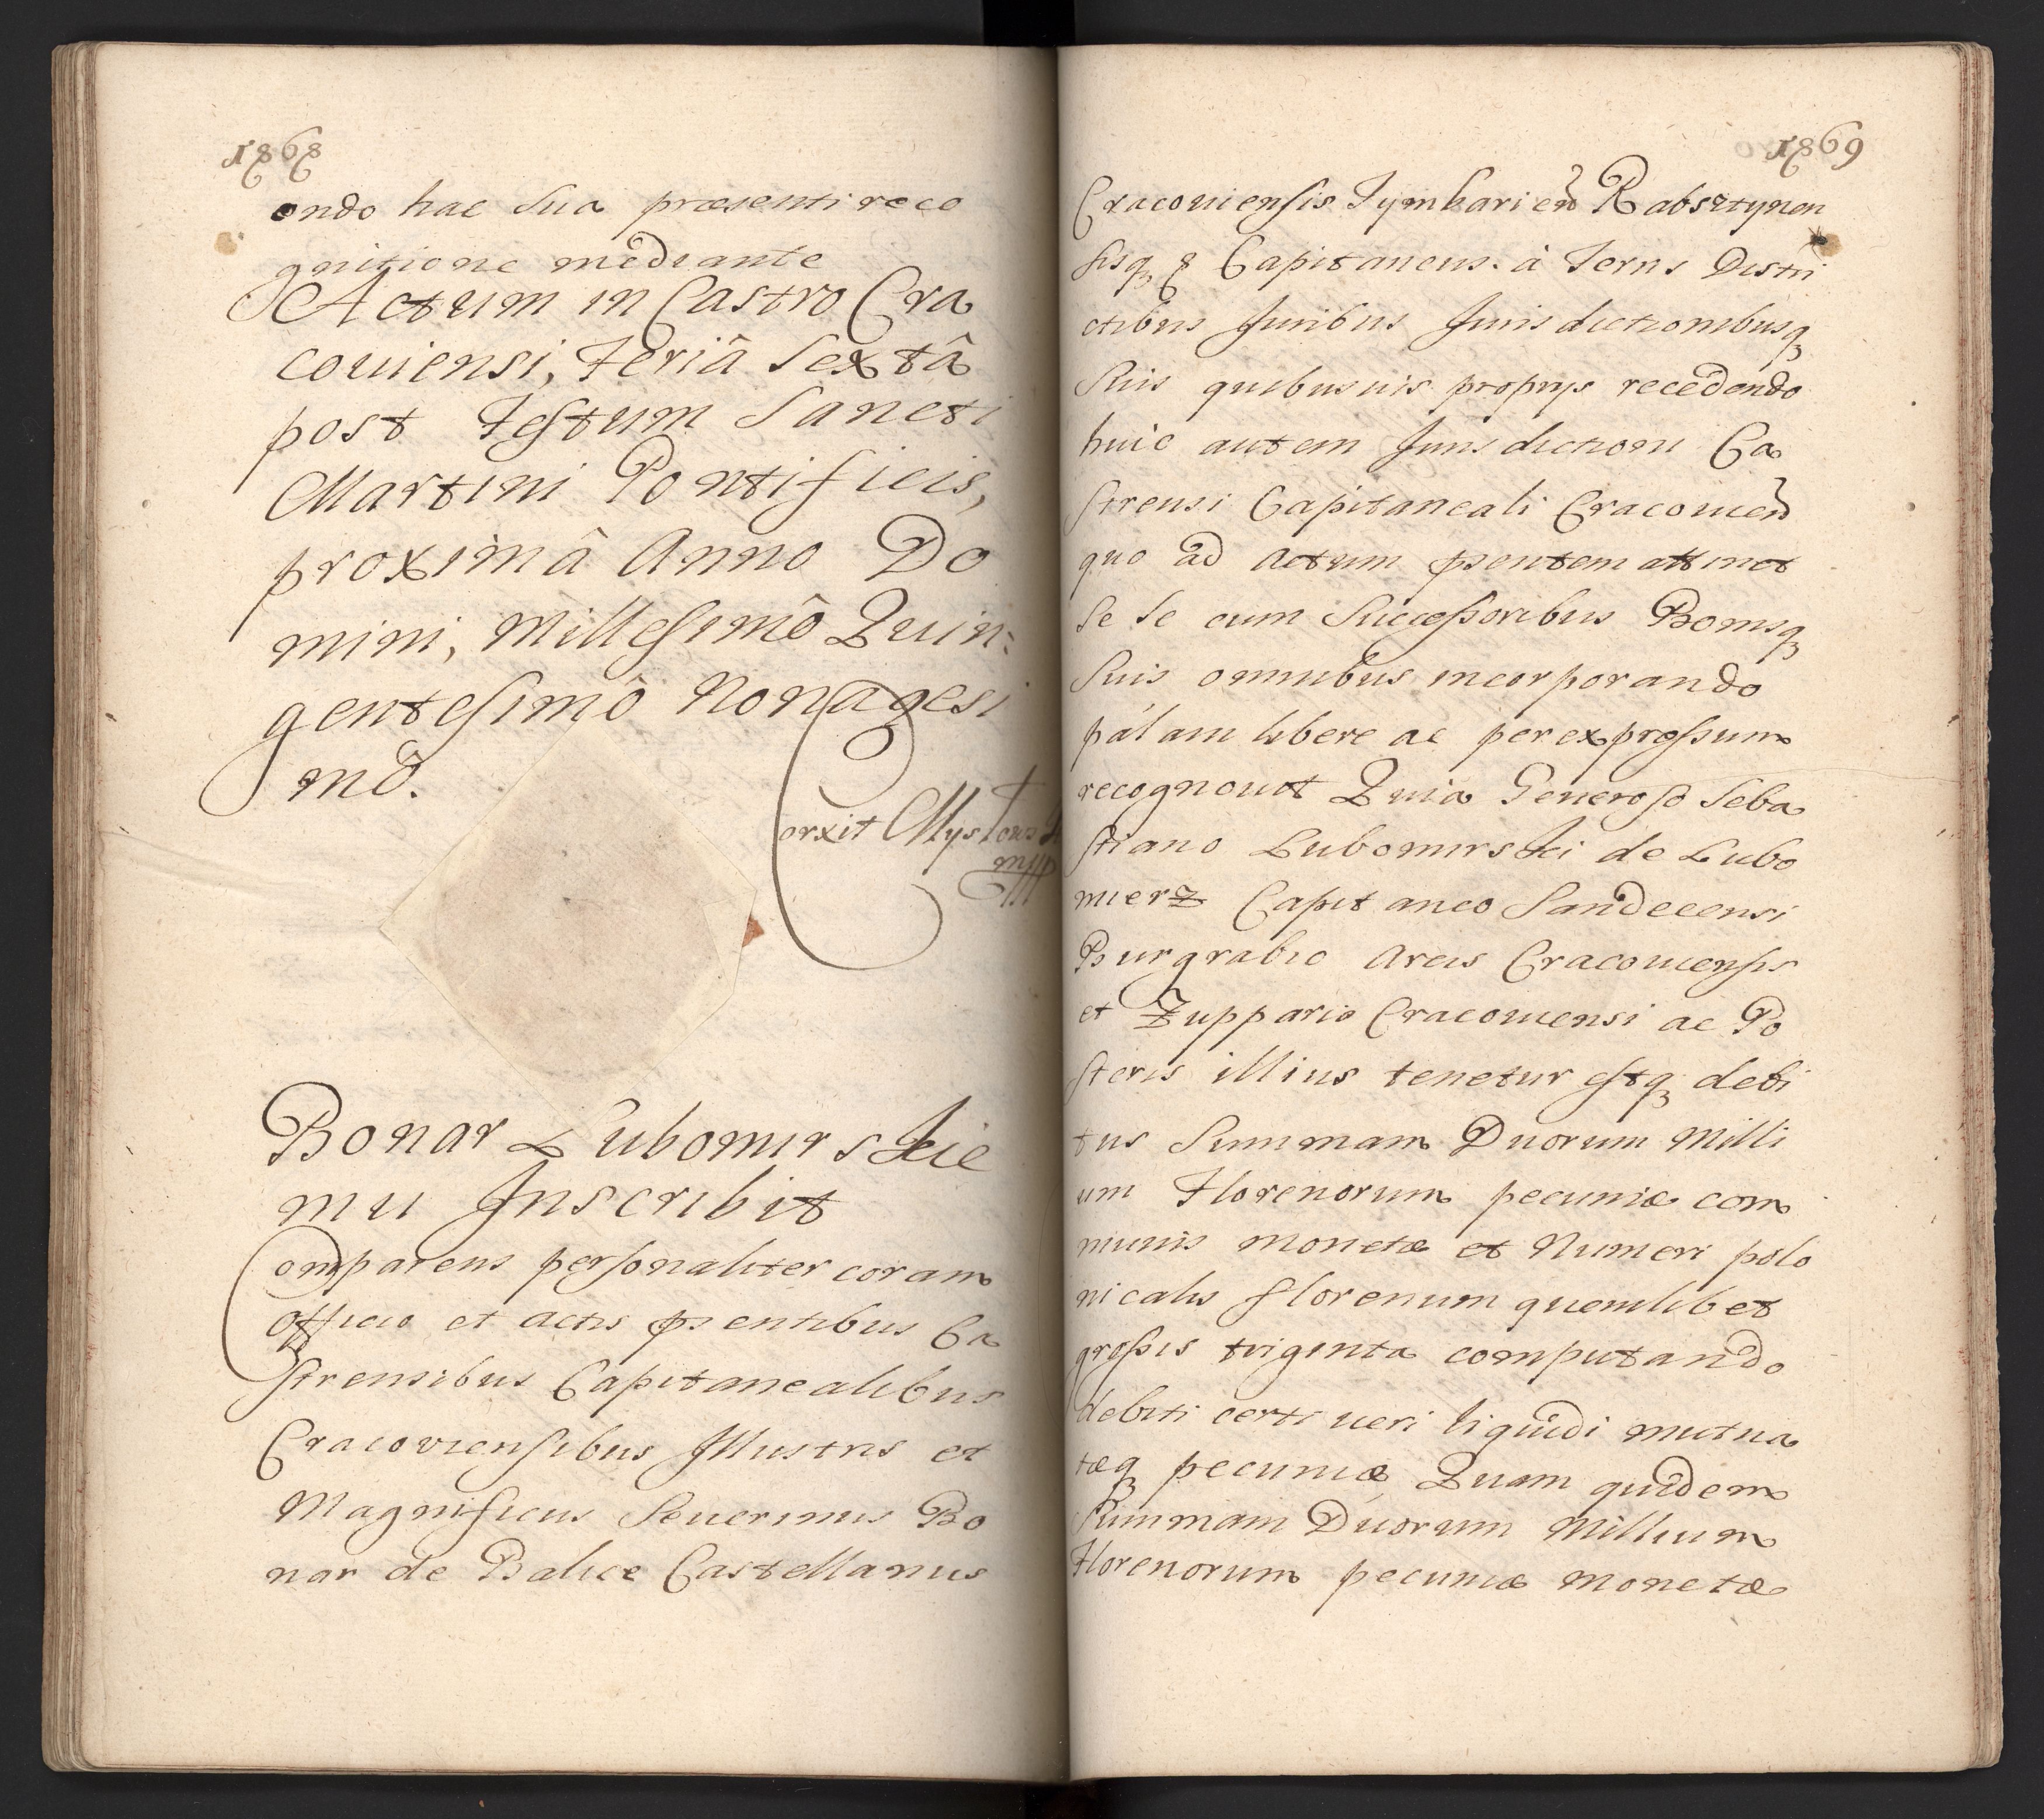 1868
ondo hac Sua præsenti reco
gnitione mediante
Actum in Castro Cra
couiensi, Feriâ Sextâ
post Festum Sancti
Martini Pontificis,
proximâ Anno Do
mini, Millesimô Quin:
gentesimô Nonagesi
mô.
Corxit Myst
mpp
Bonar Lubomirskie
mu Inscribit
Comparens personaliter coram
officio et actis psentibus Ca
strensibus Capitanealibus
Cracoviensibus Illustris et
Magnificus Seuerinus Bo
nar de Balice Castellanus
1869
Cracouiensis Rabsztynen
sisq Capitaneus. à Terris Distri
ctibus Juribus Jurisdictionibusq
Suis quibusuis proprys recedendo
huic autem Jurisdictioni Ca
strensi Capitaneali Cracouien
quo ad actum psentem attinet
Se Se cum Successoribus Bonisq
Suis omnibus incorporando
pálam libere ac per expressum
recognouit Quia Generoso Seba
stiano Lubomirski de Lubo
mierz Capitaneo Sandecensi
Burgrabio Arcis Cracouiensis
et Zuppario Cracouiensi ac Po
steris illius tenetur estq debi
tus Summam Duorum Milli
um Florenorum pecuniæ com
munis monetæ et Numeri polo
nicalis florenum quemlibet
grossis triginta computando
debiti certi ueri liquidi mutua
tæq pecuniæ Quam quidem
Summam Duorum Millium
Florenorum pecuniæ monetæ